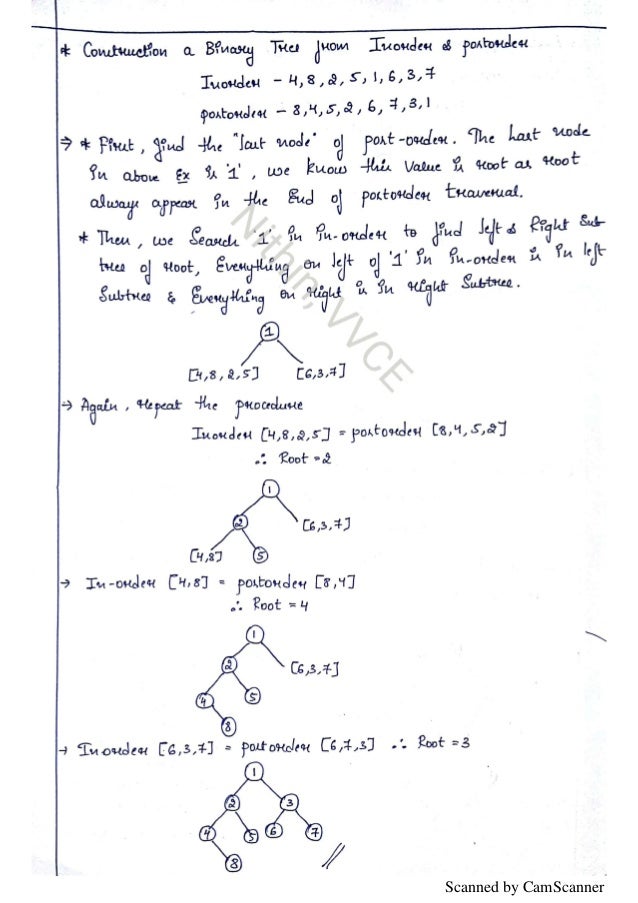 * Construction a Binary Tree from Inorder & postorder
Inorder - 4, 8, 2, 5, 1, 6, 3, 7
postorder - 8, 4, 5, 2, 6, 7, 3, 1
⇒ * First, find the "last node" of post-order. The last node
In above Ex is '1', we know this value is root as root
always appear in the End of postorder traversal.
* Then, we Search '1' in in-order to find left & Right Sub
tree of root, Everything on left of '1' in in-order is in left
Subtree & Everything on right is in right Subtree.
1
[4, 8, 2, 5] [6, 3, 7]
→ Again, repeat the procedure
Inorder [4, 8, 2, 5] = postorder [8, 4, 5, 2]
∴ Root = 2
1
2 [6, 3, 7]
[4, 8] 5
→ In-order [4, 8] = postorder [8, 4]
∴ Root = 4
1
2 [6, 3, 7]
4 5
8
→ Inorder [6, 3, 7] = postorder [6, 7, 3] ∴ Root = 3
1
2 3
4 5 6 7
8
Nithin, VVCE
Scanned by CamScanner